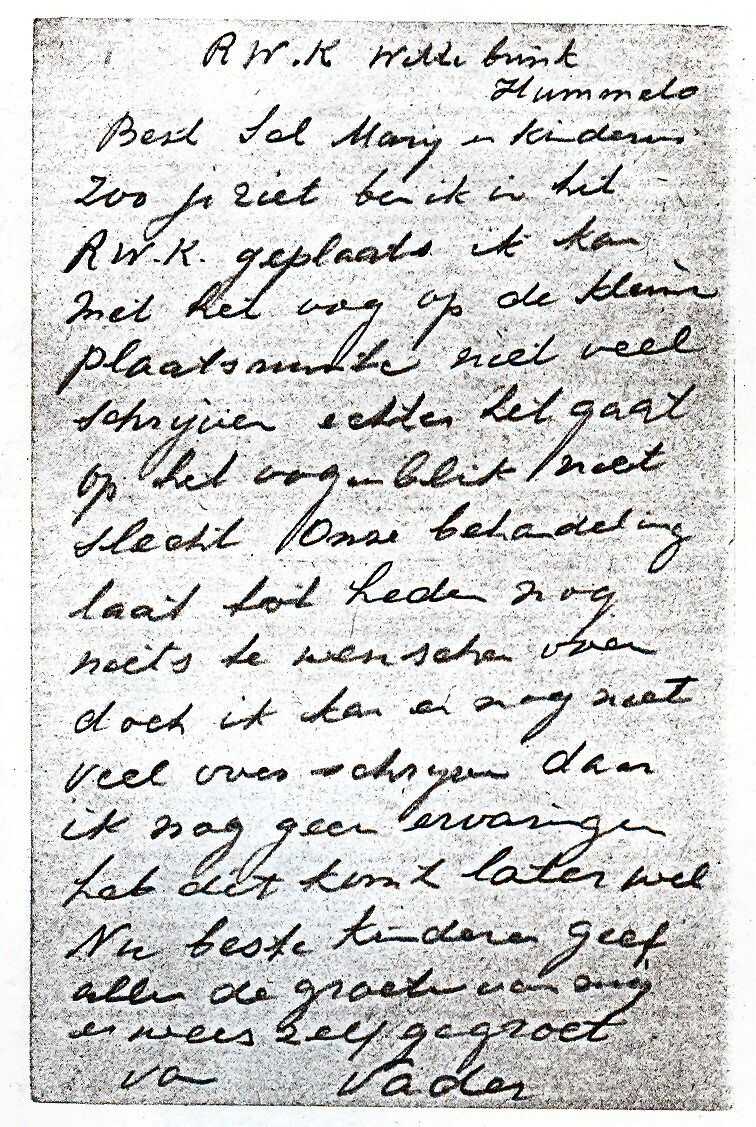 R.W.K Wittebrink
Hummelo
Best Sal Mary en kinderen
Zoo je ziet ben ik in het
R.W.K. geplaats ik kan
met het oog op de kleine
plaatsruimte niet veel
schrijven echter het gaat
op het oogenblik niet
slecht Onze behandeling
laat tot heden nog
niets te wenschen over
doch ik kan er nog niet
veel over schrijven daar
ik nog geen ervaringen
heb dit komt later wel
Nu beste kinderen geef
allen de groeten van mij
en wees zelf gegroet
van Vader